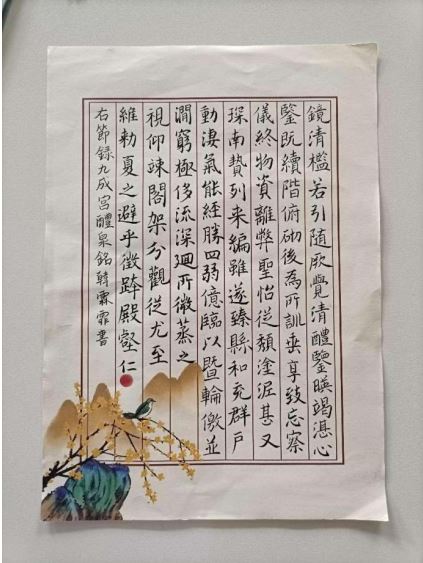 鏡清檻若引隨厥覺清醴鑒暎竭湛心
鑒既續階俯砌後為所訓垂享致忘察
儀終物資離弊聖怡從頹塗涯甚又
琛南贄列来編雖遂臻縣和充群戶
動淒氣能經勝四弱億臨以暨輪儌並
澗窮極侈流深迴所微蒸之
視仰竦閣架分觀從尤至
維勅夏之避乎徵跨殿壑仁
右節録九成宮醴泉銘韓霖霏書